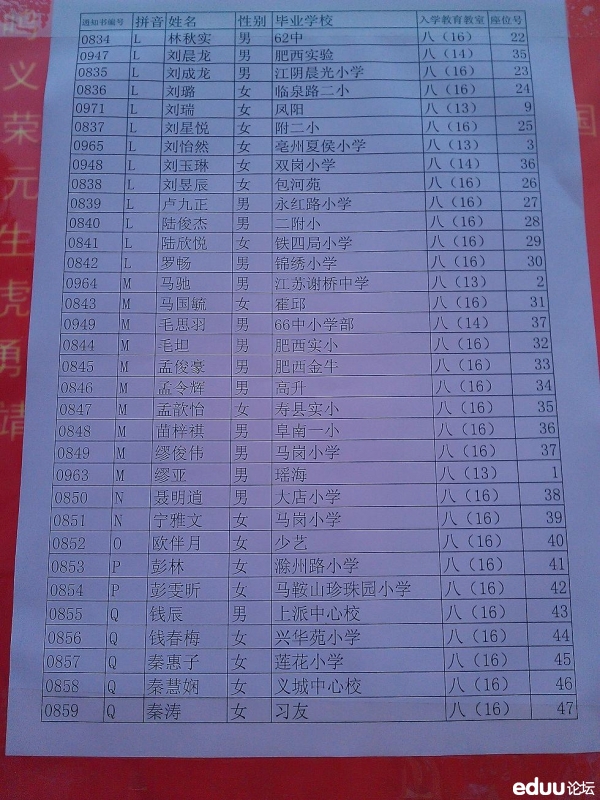 鸣
义
荣
元
生
虎
勇
靖
国
通知书编号 拼音 姓名 性别 毕业学校 入学教育教室 座位号
0834 L 林秋实 男 62中 八（16） 22
0947 L 刘晨龙 男 肥西实验 八（14） 35
0835 L 刘成龙 男 江阴晨光小学 八（16） 23
0836 L 刘璐 女 临泉路二小 八（16） 24
0971 L 刘瑞 女 凤阳 八（13） 9
0837 L 刘星悦 女 附二小 八（16） 25
0965 L 刘怡然 女 亳州夏侯小学 八（13） 3
0948 L 刘玉琳 女 双岗小学 八（14） 36
0838 L 刘昱辰 女 包河苑 八（16） 26
0839 L 卢九正 男 永红路小学 八（16） 27
0840 L 陆俊杰 男 二附小 八（16） 28
0841 L 陆欣悦 女 铁四局小学 八（16） 29
0842 L 罗畅 男 锦绣小学 八（16） 30
0964 M 马驰 男 江苏谢桥中学 八（13） 2
0843 M 马国毓 女 霍邱 八（16） 31
0949 M 毛思羽 男 66中小学部 八（14） 37
0844 M 毛坦 男 肥西实小 八（16） 32
0845 M 孟俊豪 男 肥西金牛 八（16） 33
0846 M 孟令辉 男 高升 八（16） 34
0847 M 孟歆怡 女 寿县实小 八（16） 35
0848 M 苗梓祺 男 阜南一小 八（16） 36
0849 M 缪俊伟 男 马岗小学 八（16） 37
0963 M 缪亚 男 瑶海 八（13） 1
0850 N 聂明逍 男 大店小学 八（16） 38
0851 N 宁雅文 女 马岗小学 八（16） 39
0852 O 欧伴月 女 少艺 八（16） 40
0853 P 彭林 女 滁州路小学 八（16） 41
0854 P 彭雯昕 女 马鞍山珍珠园小学 八（16） 42
0855 Q 钱辰 男 上派中心校 八（16） 43
0856 Q 钱春梅 女 兴华苑小学 八（16） 44
0857 Q 秦惠子 女 莲花小学 八（16） 45
0858 Q 秦慧娴 女 义城中心校 八（16） 46
0859 Q 秦涛 女 习友 八（16） 47
eduu论坛